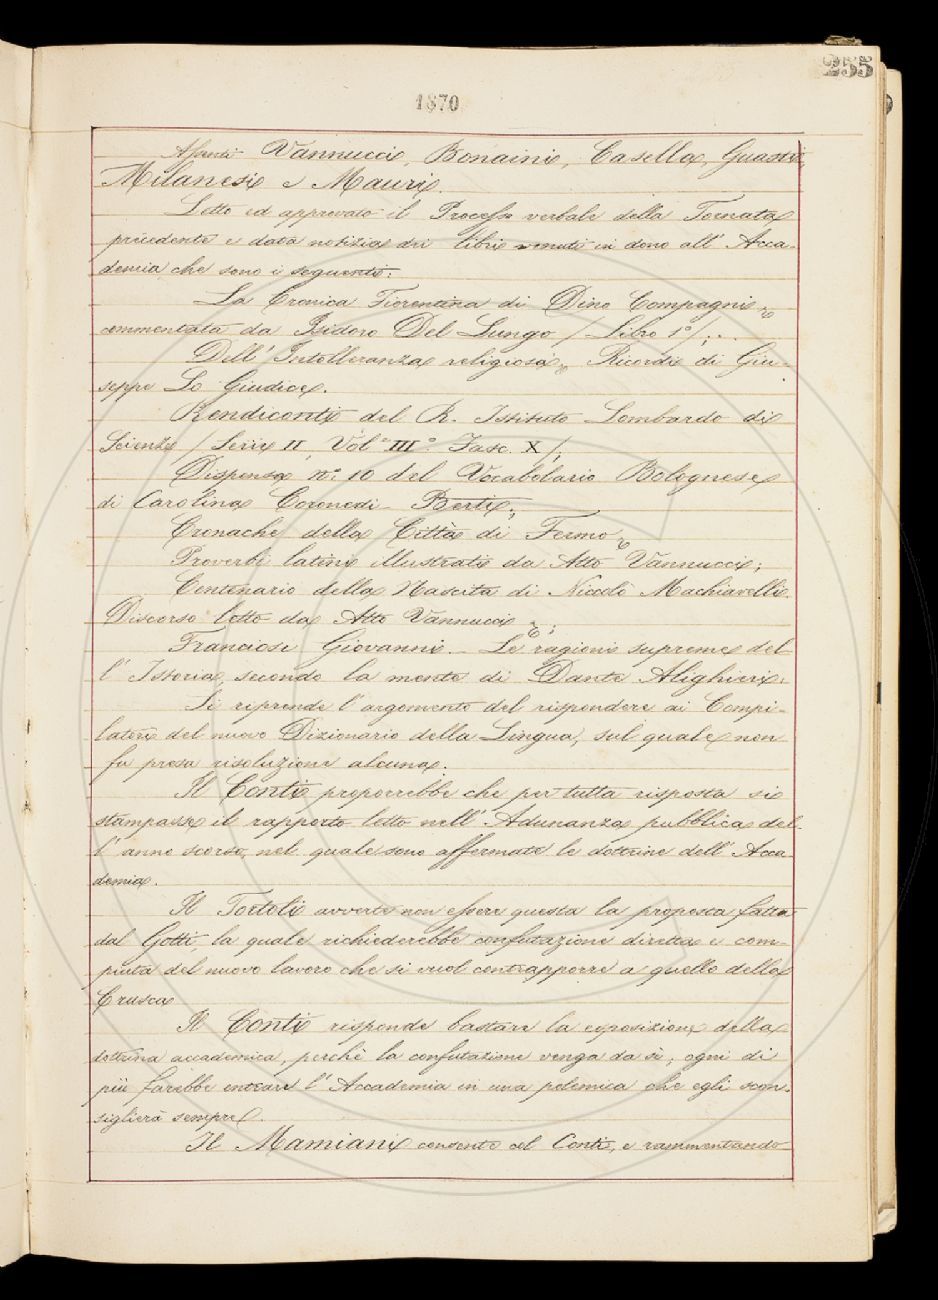 255
1870
Assenti Vannucci, Bonaini, Casella, Guasti,
Milanesi e Mauri.
Letto ed approvato il Processo verbale della Tornata
precedente e data notizia dei libri venuti in dono all' Acca-
demia, che sono i seguenti:
La Cronica Fiorentina di Dino Compagni
commentata da Isidoro Del Lungo / Libro 1° /;
Dell' Intolleranza religiosa, Ricordi di Giu-
seppe Lo Giudice.
Rendiconti del R. Istituto Lombardo di
Scienze / Serie II, Vol° III° Fasc. X /;
Dispensa n° 10 del Vocabolario Bolognese
di Carolina Coronedi - Berti;
Cronache della Città di Fermo
Proverbi latini illustrati da Atto Vannucci;
Centenario della Nascita di Niccolò Machiavelli.
Discorso letto da Atto Vannucci;
Franciosi Giovanni. - Le ragioni supreme del-
l' Istoria, secondo la mente di Dante Alighieri.
Si riprende l' argomento del rispondere ai Compi-
latori del nuovo Dizionario della Lingua, sul quale non
fu presa risoluzione alcuna.
Il Conti proporrebbe che per tutta risposta si
stampasse il rapporto letto nell' Adunanza pubblica del-
l' anno scorso, nel quale sono affermate le dottrine dell' Acca-
demia.
Il Tortoli avverte non essere questa la proposta fatta
dal Gotti, la quale richiederebbe confutazione diretta e com-
piuta del nuovo lavoro che si vuol contrapporre a quello della
Crusca
Il Conti risponde bastare la esposizione della
dottrina accademica, perchè la confutazione venga da sè; ogni di
più farebbe entrare l' Accademia in una polemica che egli scon-
siglierà sempre.
Il Mamiani consente col Conti, e rammentando